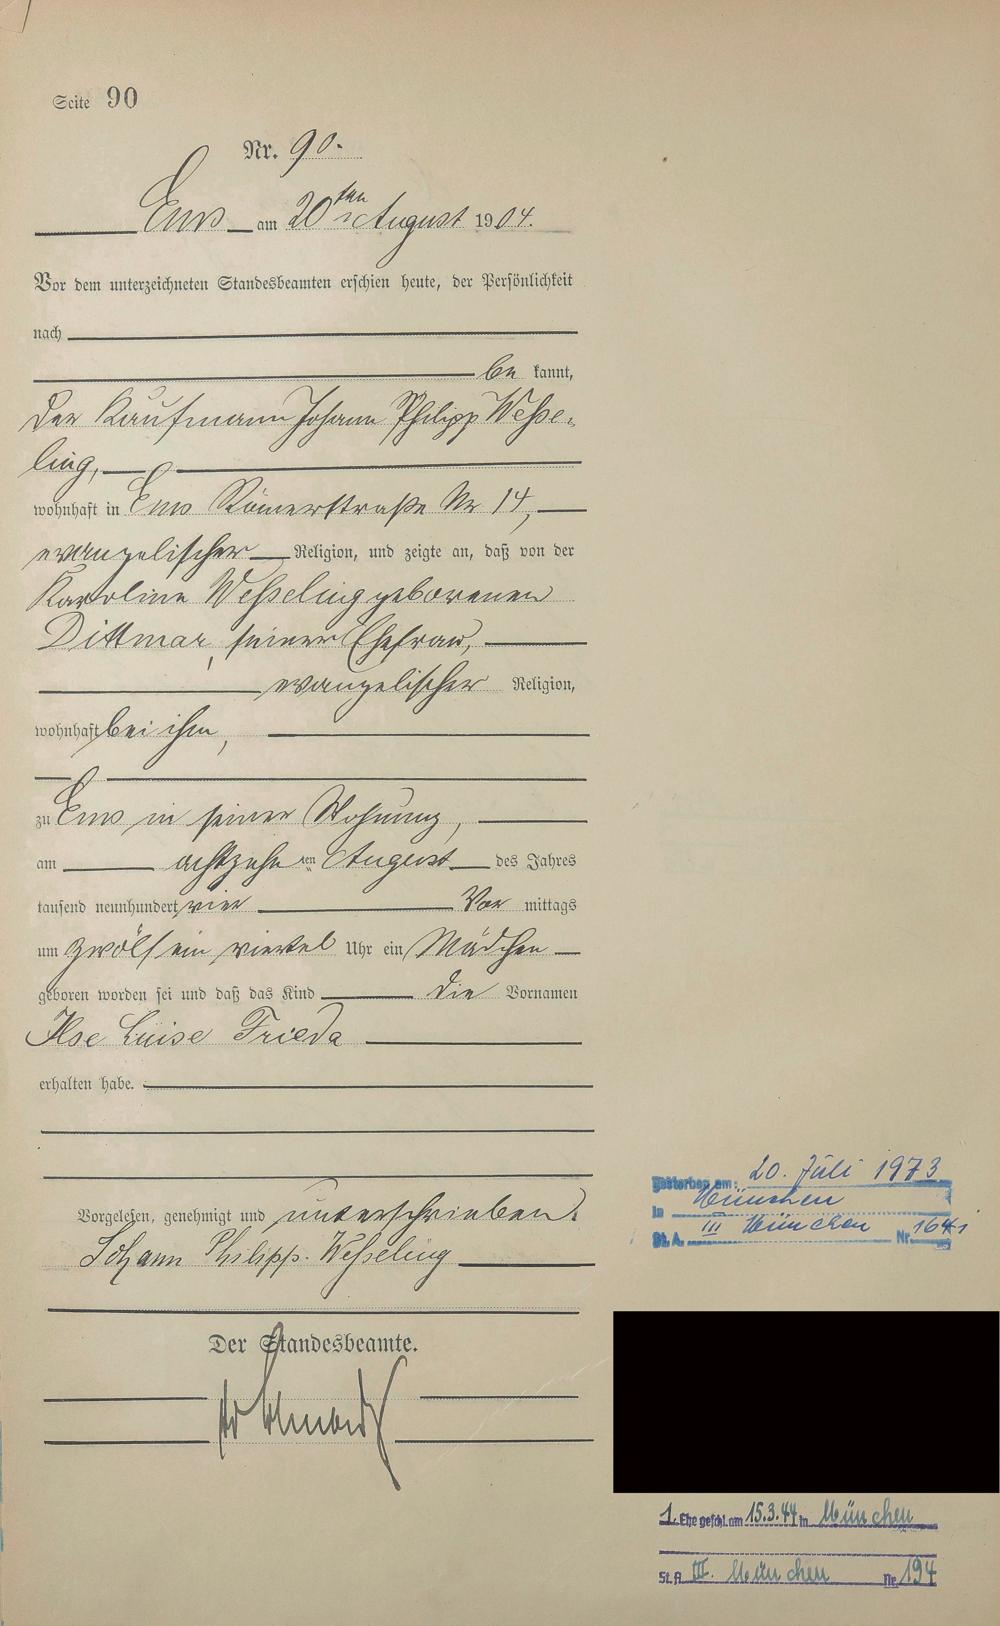 Seite 90
Nr. 90.
Ems am 20ten August 1904.
Vor dem unterzeichneten Standesbeamten erschien heute, der Persönlichkeit
nach
be kannt,
der Kaufmann Johann Philipp Wesse-
ling,
wohnhaft in Ems Römerstraße Nr 14,
evangelischer Religion, und zeigte an, daß von der
Karoline Wesseling geborenen
Dittmar, seiner Ehefrau,
evangelischer Religion,
wohnhaft bei ihm,
zu Ems in seiner Wohnung,
am achtzehnten August des Jahres
tausend neunhundert vier Vor mittags
um zwölf ein viertel Uhr ein Mädchen
geboren worden sei und daß das Kind die Vornamen
Ilse Luise Frieda
erhalten habe.
Vorgelesen, genehmigt und unterschrieben.
Johann Philipp Wesseling
Der Standesbeamte.
Gestorben am: 20. Juli 1973
in München
St.A. III München Nr. 1641
1. Ehe geschl. am 15.3.44 in München
St.A III. München Nr. 194